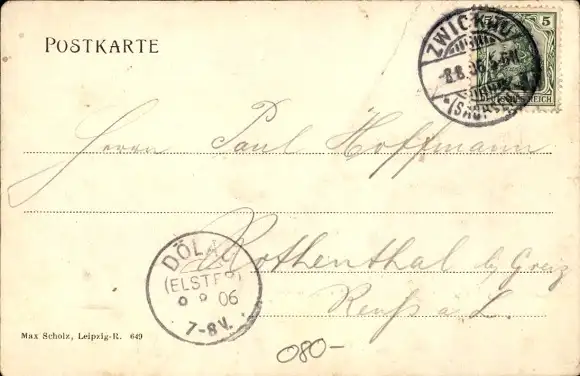 POSTKARTE
ZWICKAU
8.8.06.5-6N.
(SACHSEN)
5 5
DEUTSCHES REICH
Herrn Paul Hoffmann
Rothenthal b/ Greiz
Reuß a. L.
DÖLAU
(ELSTER)
9 8 06
7-8V.
Max Scholz, Leipzig-R. 649
080-